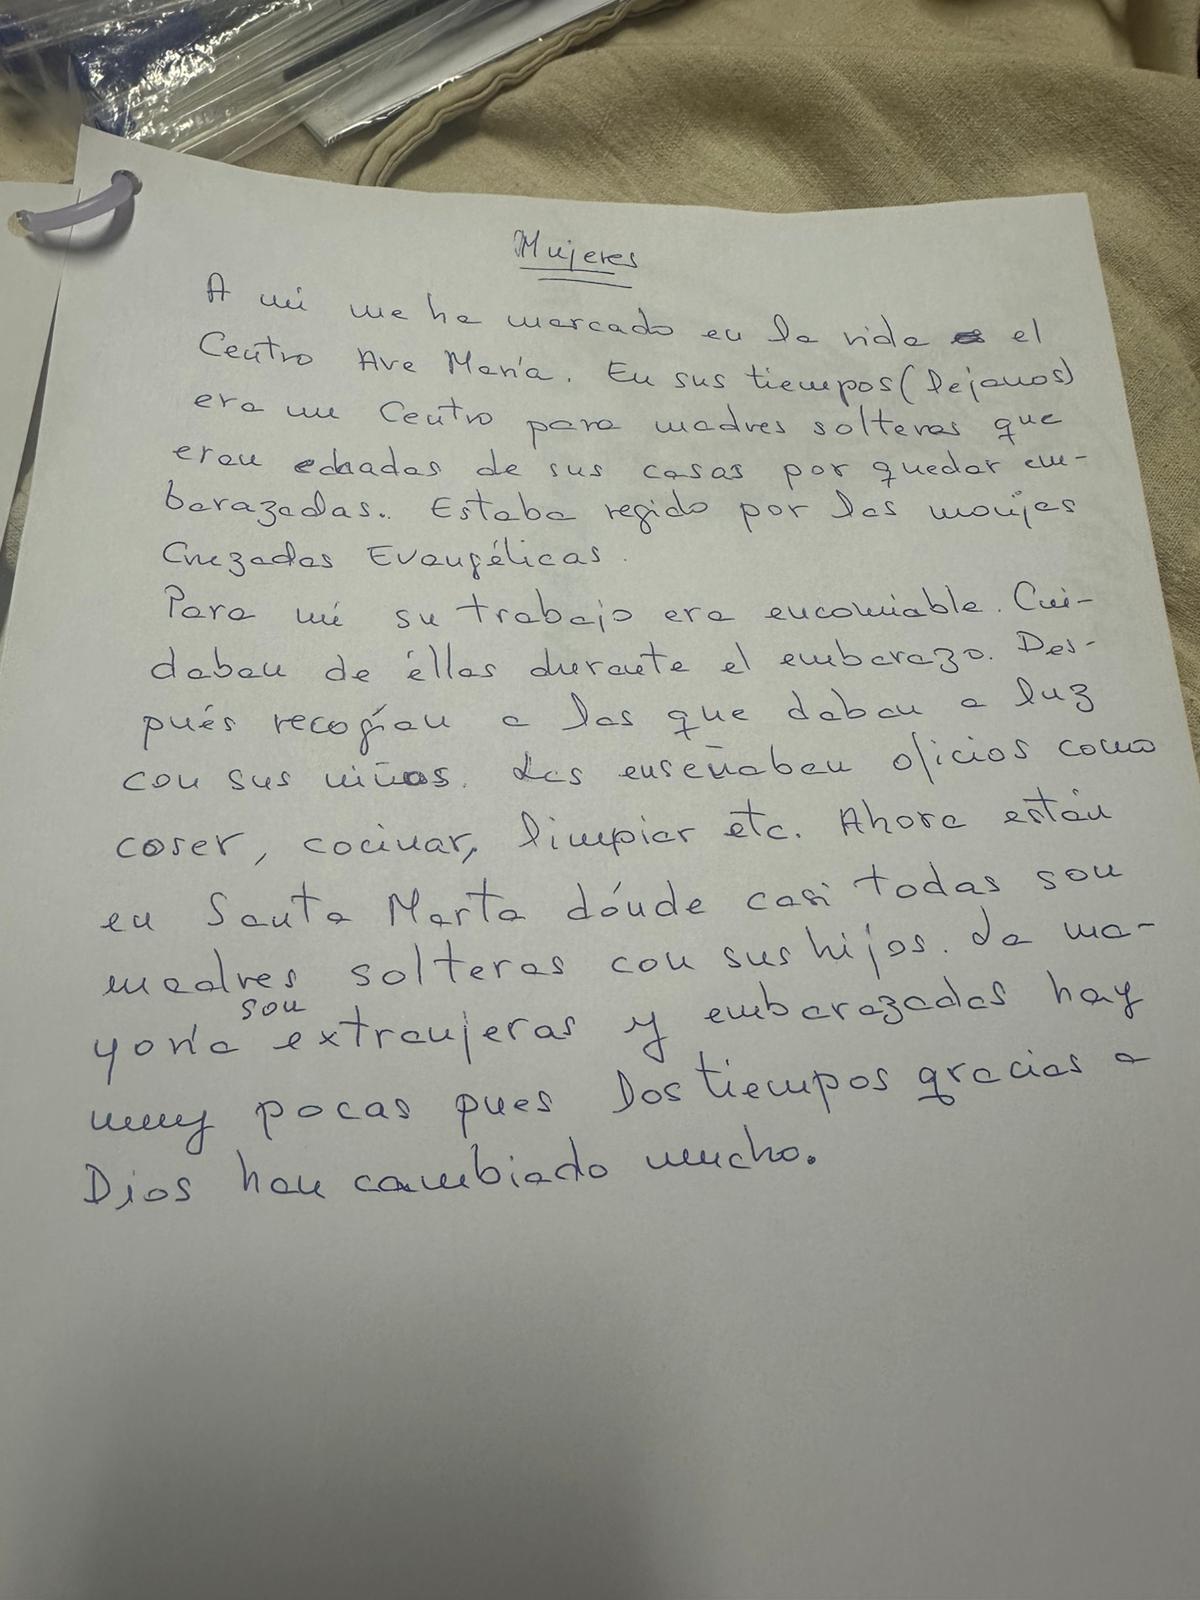 Mujeres
A mí me ha marcado en la vida el
Centro Ave María. En sus tiempos (lejanos)
era un Centro para madres solteras que
eran echadas de sus casas por quedar em-
barazadas. Estaba regido por las monjas
Cruzadas Evangélicas.
Para mí su trabajo era encomiable. Cui-
daban de éllas durante el embarazo. Des-
pués recogían a las que daban a luz
con sus niños. Les enseñaban oficios como
coser, cocinar, limpiar etc. Ahora están
en Santa Marta dónde casi todas son
madres solteras con sus hijos. La ma-
yoría son extranjeras y embarazadas hay
muy pocas pues los tiempos gracias a
Dios han cambiado mucho.